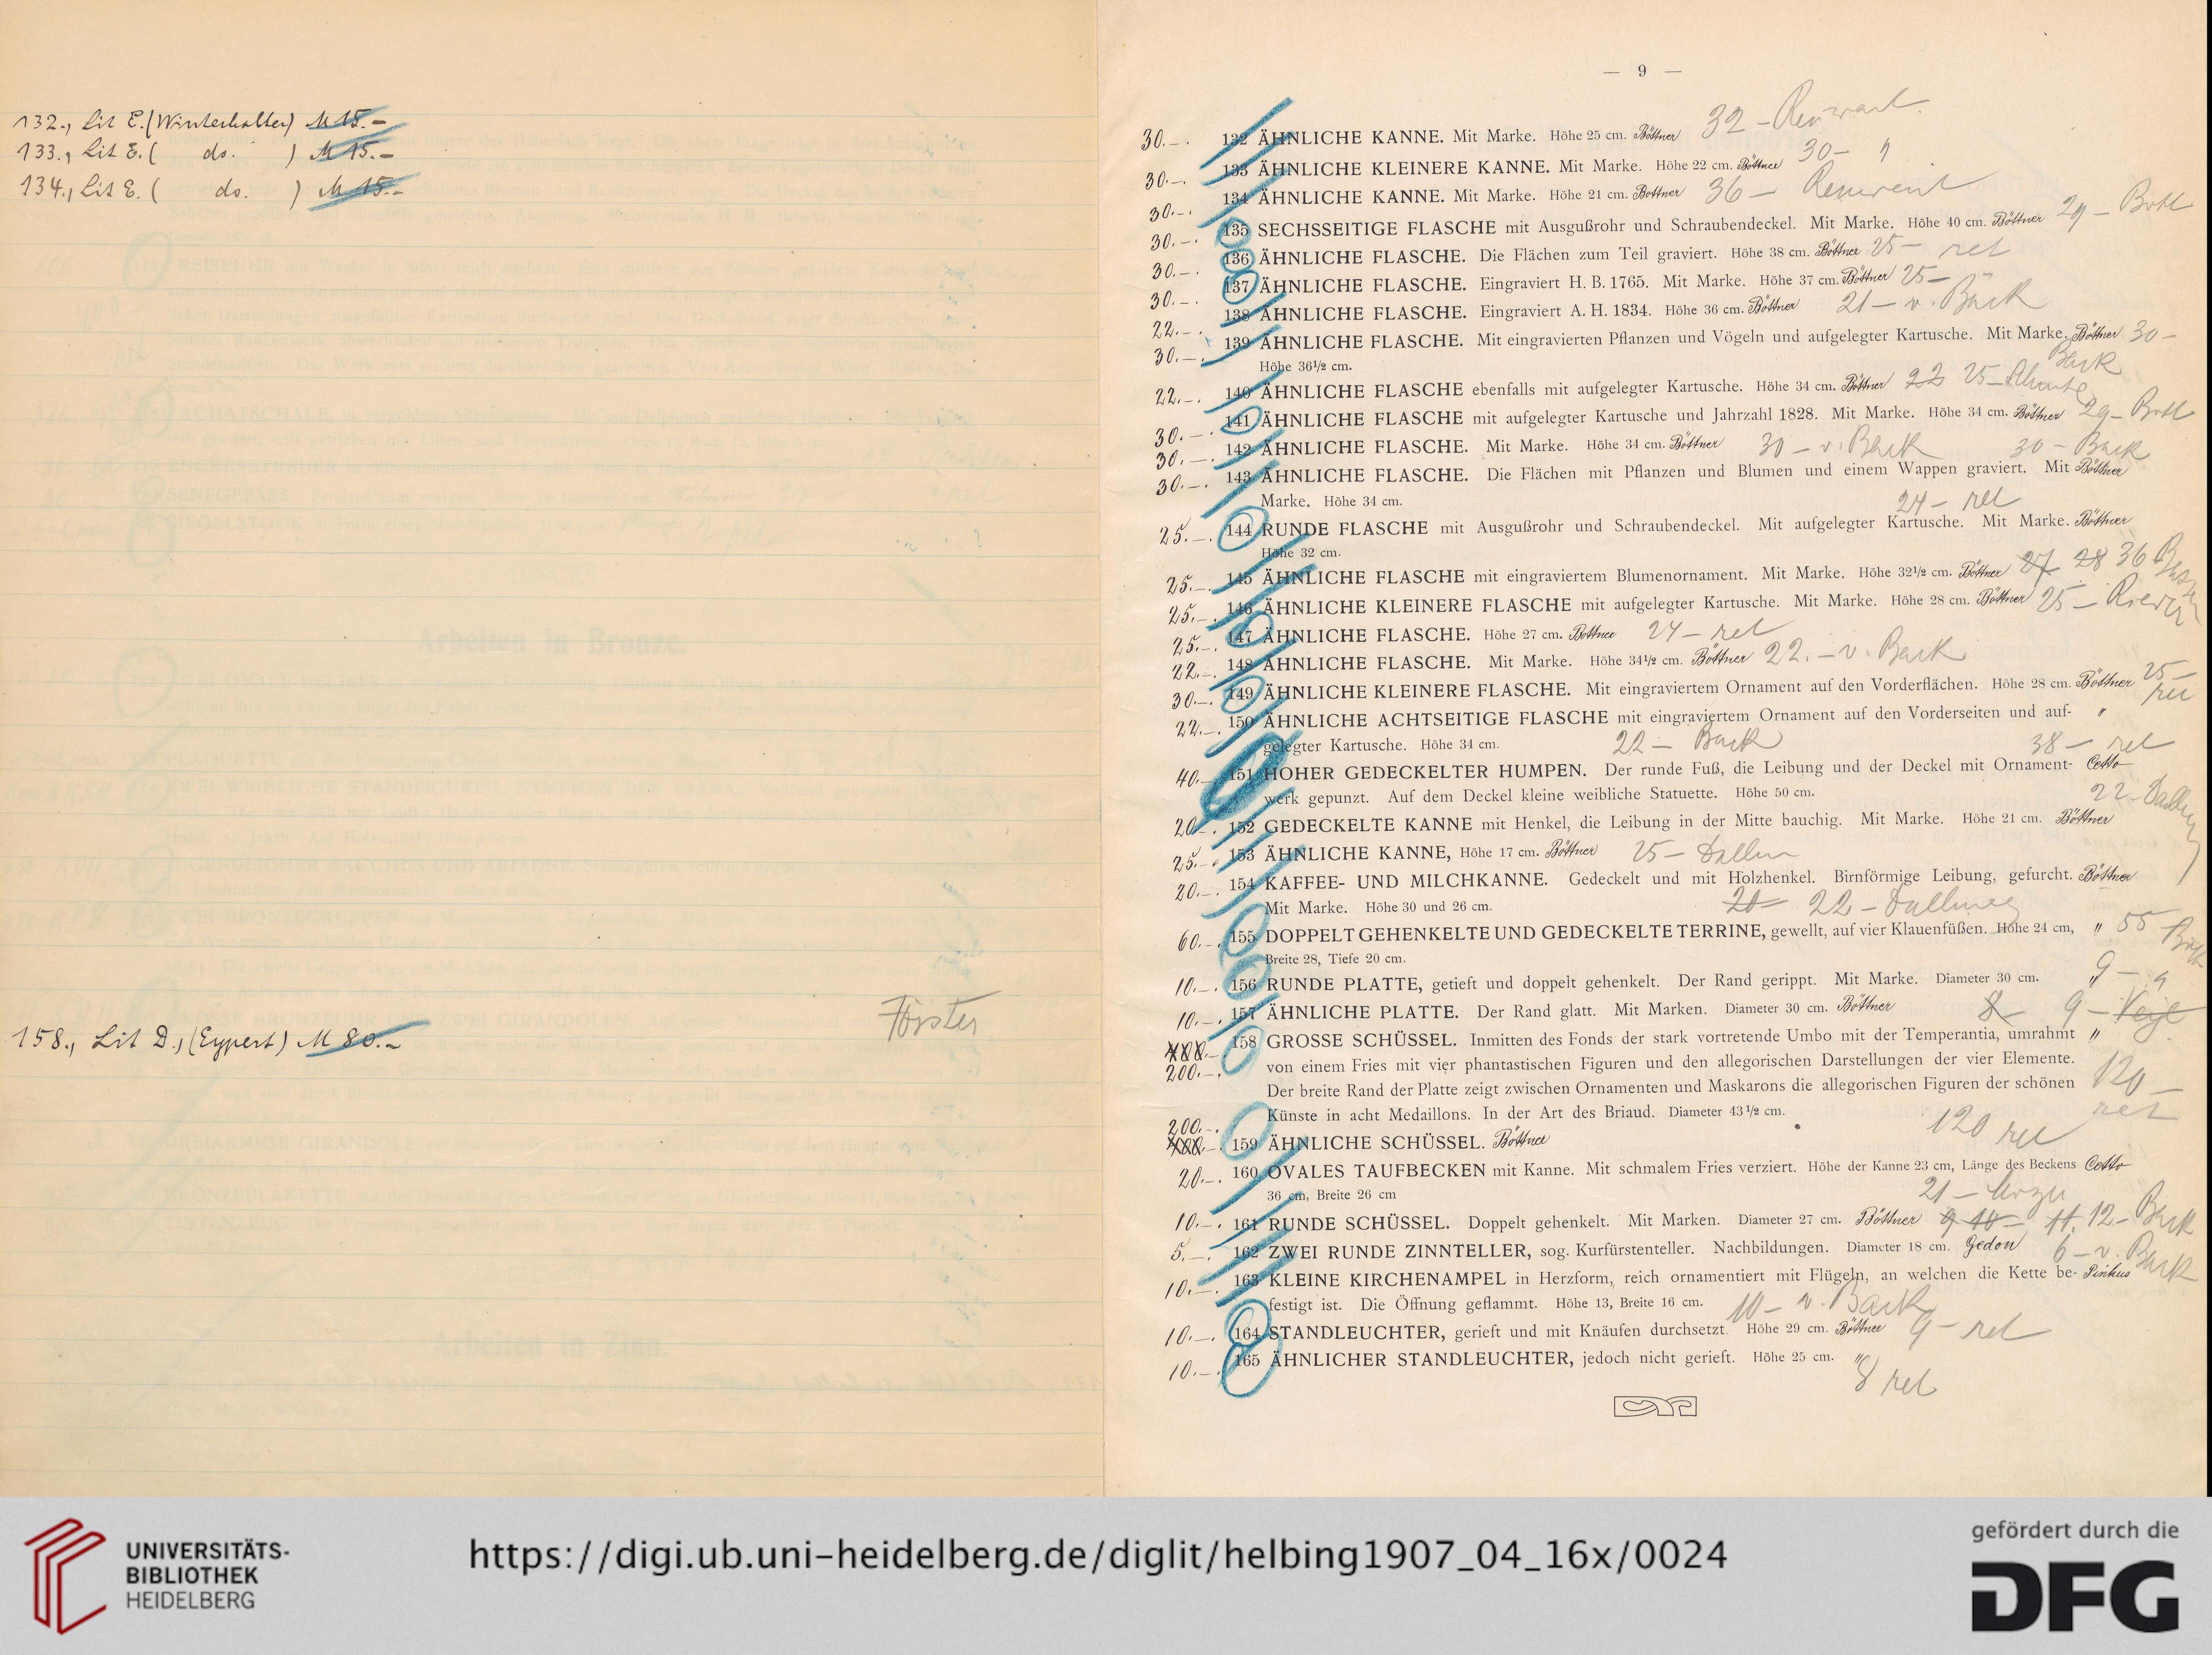 132., Lit E. (Winterhalter) M 15.-
133., Lit E. ( do. ) M 15.-
134., Lit E. ( do. ) M 15.-
Förster
158., Lit D., (Eypert) M 80.-
— 9 —
30.-. 132 ÄHNLICHE KANNE. Mit Marke. Höhe 25 cm. Böttner 32 -
30.-. 133 ÄHNLICHE KLEINERE KANNE. Mit Marke. Höhe 22 cm. Böttner 30 - "
30.-. 134 ÄHNLICHE KANNE. Mit Marke. Höhe 21 cm. Böttner 36 -
30.-. 135 SECHSSEITIGE FLASCHE mit Ausgußrohr und Schraubendeckel. Mit Marke. Höhe 40 cm. Böttner 29 - Bottl
30.-. 136 ÄHNLICHE FLASCHE. Die Flächen zum Teil graviert. Höhe 38 cm. Böttner 25 - ret
30.-. 137 ÄHNLICHE FLASCHE. Eingraviert H. B. 1765. Mit Marke. Höhe 37 cm. Böttner 25 -
22.-. 138 ÄHNLICHE FLASCHE. Eingraviert A. H. 1834. Höhe 36 cm. Böttner 21 - v. Back
30.-. 139 ÄHNLICHE FLASCHE. Mit eingravierten Pflanzen und Vögeln und aufgelegter Kartusche. Mit Marke. Böttner 30 -
Höhe 36½ cm. Back
22.-. 140 ÄHNLICHE FLASCHE ebenfalls mit aufgelegter Kartusche. Höhe 34 cm. Böttner 22 25 -
30.-. 141 ÄHNLICHE FLASCHE mit aufgelegter Kartusche und Jahrzahl 1828. Mit Marke. Höhe 34 cm. Böttner 29 - Bottl
30.-. 142 ÄHNLICHE FLASCHE. Mit Marke. Höhe 34 cm. Böttner 30 - v. Back 30 - Back
30.-. 143 ÄHNLICHE FLASCHE. Die Flächen mit Pflanzen und Blumen und einem Wappen graviert. Mit Böttner
Marke. Höhe 34 cm. 24 - ret
25.-. 144 RUNDE FLASCHE mit Ausgußrohr und Schraubendeckel. Mit aufgelegter Kartusche. Mit Marke. Böttner
Höhe 32 cm.
25.-. 145 ÄHNLICHE FLASCHE mit eingraviertem Blumenornament. Mit Marke. Höhe 32½ cm. Böttner 27 28 36
25.-. 146 ÄHNLICHE KLEINERE FLASCHE mit aufgelegter Kartusche. Mit Marke. Höhe 28 cm. Böttner 25 -
25.-. 147 ÄHNLICHE FLASCHE. Höhe 27 cm. Böttner 24 - ret
22.-. 148 ÄHNLICHE FLASCHE. Mit Marke. Höhe 34½ cm. Böttner 22.- v. Back
30.-. 149 ÄHNLICHE KLEINERE FLASCHE. Mit eingraviertem Ornament auf den Vorderflächen. Höhe 28 cm. Böttner 25 - ret
22.-. 150 ÄHNLICHE ACHTSEITIGE FLASCHE mit eingraviertem Ornament auf den Vorderseiten und auf- "
gelegter Kartusche. Höhe 34 cm. 22 - Back 38 - ret
40.-. 151 HOHER GEDECKELTER HUMPEN. Der runde Fuß, die Leibung und der Deckel mit Ornament- Cetto
werk gepunzt. Auf dem Deckel kleine weibliche Statuette. Höhe 50 cm. 22 -
20.-. 152 GEDECKELTE KANNE mit Henkel, die Leibung in der Mitte bauchig. Mit Marke. Höhe 21 cm. Böttner
25.-. 153 ÄHNLICHE KANNE, Höhe 17 cm. Böttner 25 -
20.-. 154 KAFFEE- UND MILCHKANNE. Gedeckelt und mit Holzhenkel. Birnförmige Leibung, gefurcht. Böttner
Mit Marke. Höhe 30 und 26 cm. 20 22 -
60.-. 155 DOPPELT GEHENKELTE UND GEDECKELTE TERRINE, gewellt, auf vier Klauenfüßen. Höhe 24 cm, " 55
Breite 28, Tiefe 20 cm.
10.-. 156 RUNDE PLATTE, getieft und doppelt gehenkelt. Der Rand gerippt. Mit Marke. Diameter 30 cm. " 9 -
10.-. 157 ÄHNLICHE PLATTE. Der Rand glatt. Mit Marken. Diameter 30 cm. Böttner 8 9 -
158 GROSSE SCHÜSSEL. Inmitten des Fonds der stark vortretende Umbo mit der Temperantia, umrahmt "
200.-. von einem Fries mit vier phantastischen Figuren und den allegorischen Darstellungen der vier Elemente.
Der breite Rand der Platte zeigt zwischen Ornamenten und Maskarons die allegorischen Figuren der schönen 120 -
Künste in acht Medaillons. In der Art des Briaud. Diameter 43½ cm. ret
200.-. 159 ÄHNLICHE SCHÜSSEL. Böttner 120 ret
20.-. 160 OVALES TAUFBECKEN mit Kanne. Mit schmalem Fries verziert. Höhe der Kanne 23 cm, Länge des Beckens Cetto
36 cm, Breite 26 cm 21 -
10.-. 161 RUNDE SCHÜSSEL. Doppelt gehenkelt. Mit Marken. Diameter 27 cm. Böttner 9 10 - 11. 12 - Back
5.-. 162 ZWEI RUNDE ZINNTELLER, sog. Kurfürstenteller. Nachbildungen. Diameter 18 cm. Gedon 6 - v. Back
10.-. 163 KLEINE KIRCHENAMPEL in Herzform, reich ornamentiert mit Flügeln, an welchen die Kette be- Pinkus
festigt ist. Die Öffnung geflammt. Höhe 13, Breite 16 cm. 10 - v. Back
10.-. 164 STANDLEUCHTER, gerieft und mit Knäufen durchsetzt. Höhe 29 cm. Böttner 9 - ret
10.-. 165 ÄHNLICHER STANDLEUCHTER, jedoch nicht gerieft. Höhe 25 cm. " 8 ret
UNIVERSITÄTS-
BIBLIOTHEK
HEIDELBERG
https://digi.ub.uni-heidelberg.de/diglit/helbing1907_04_16x/0024
gefördert durch die
DFG